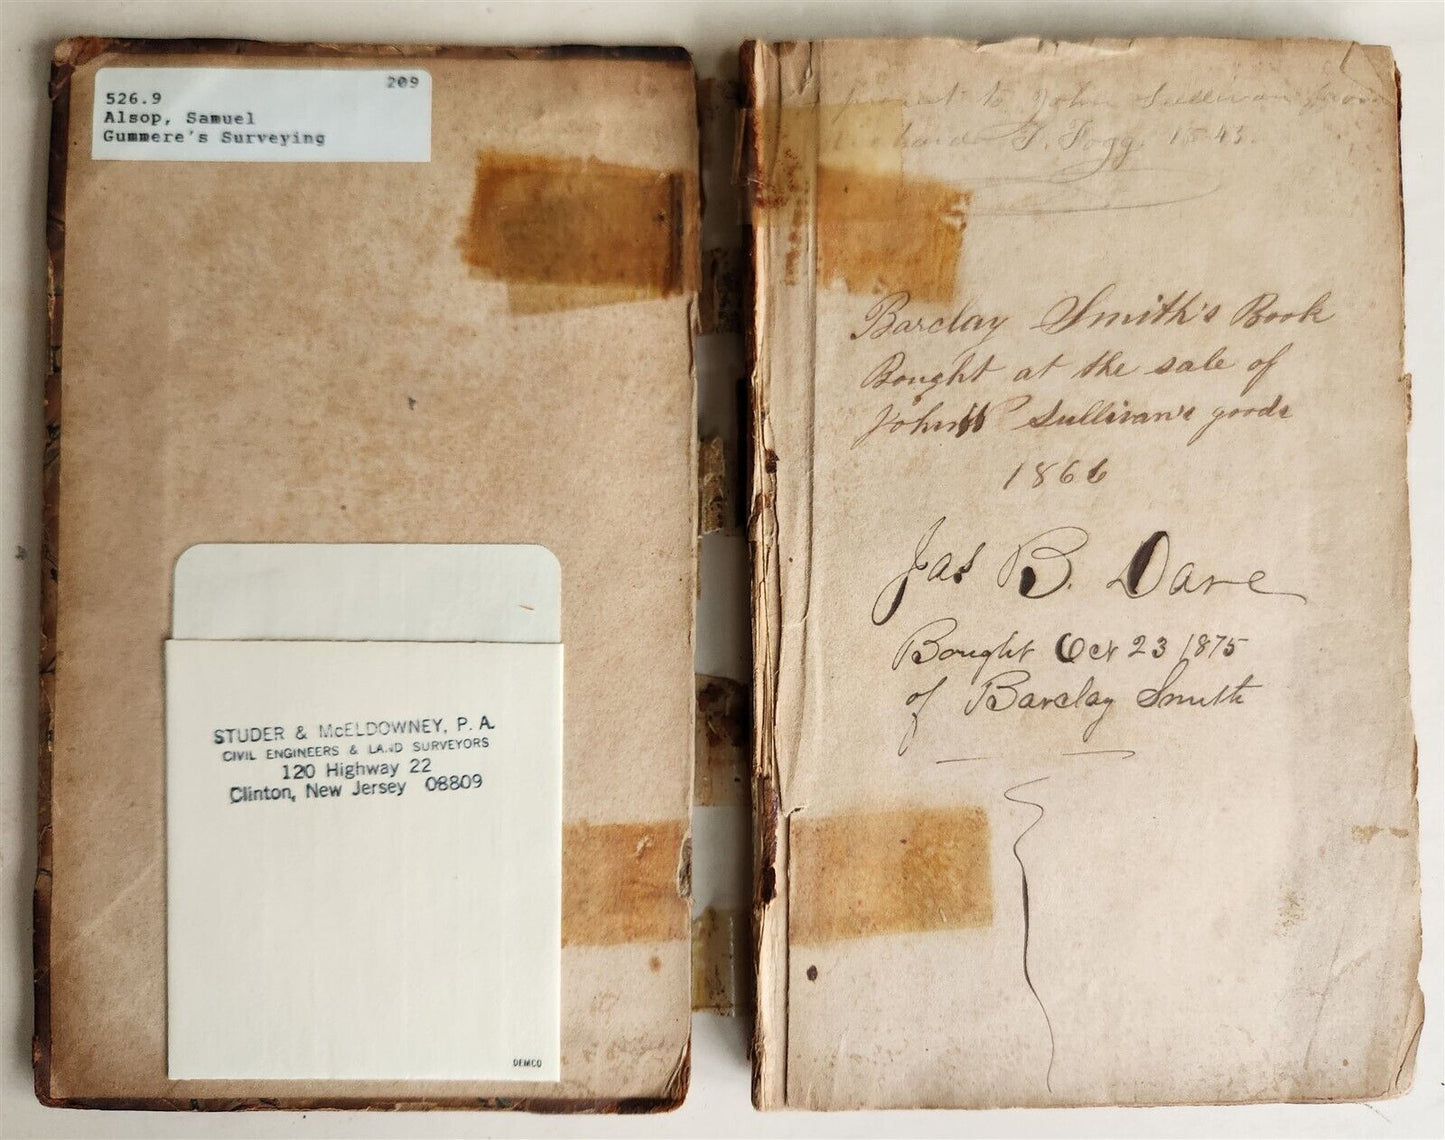 209
526.9
Alsop, Samuel
Gummere's Surveying
STUDER & McELDOWNEY, P. A.
CIVIL ENGINEERS & LAND SURVEYORS
120 Highway 22
Clinton, New Jersey 08809
DEMCO
to John Sullivan from
T. Fogg 1843.
Barclay Smith's Book
Bought at the sale of
John Sullivan's goods
1866
Jas B. Dare
Bought Oct 23 1875
of Barclay Smith